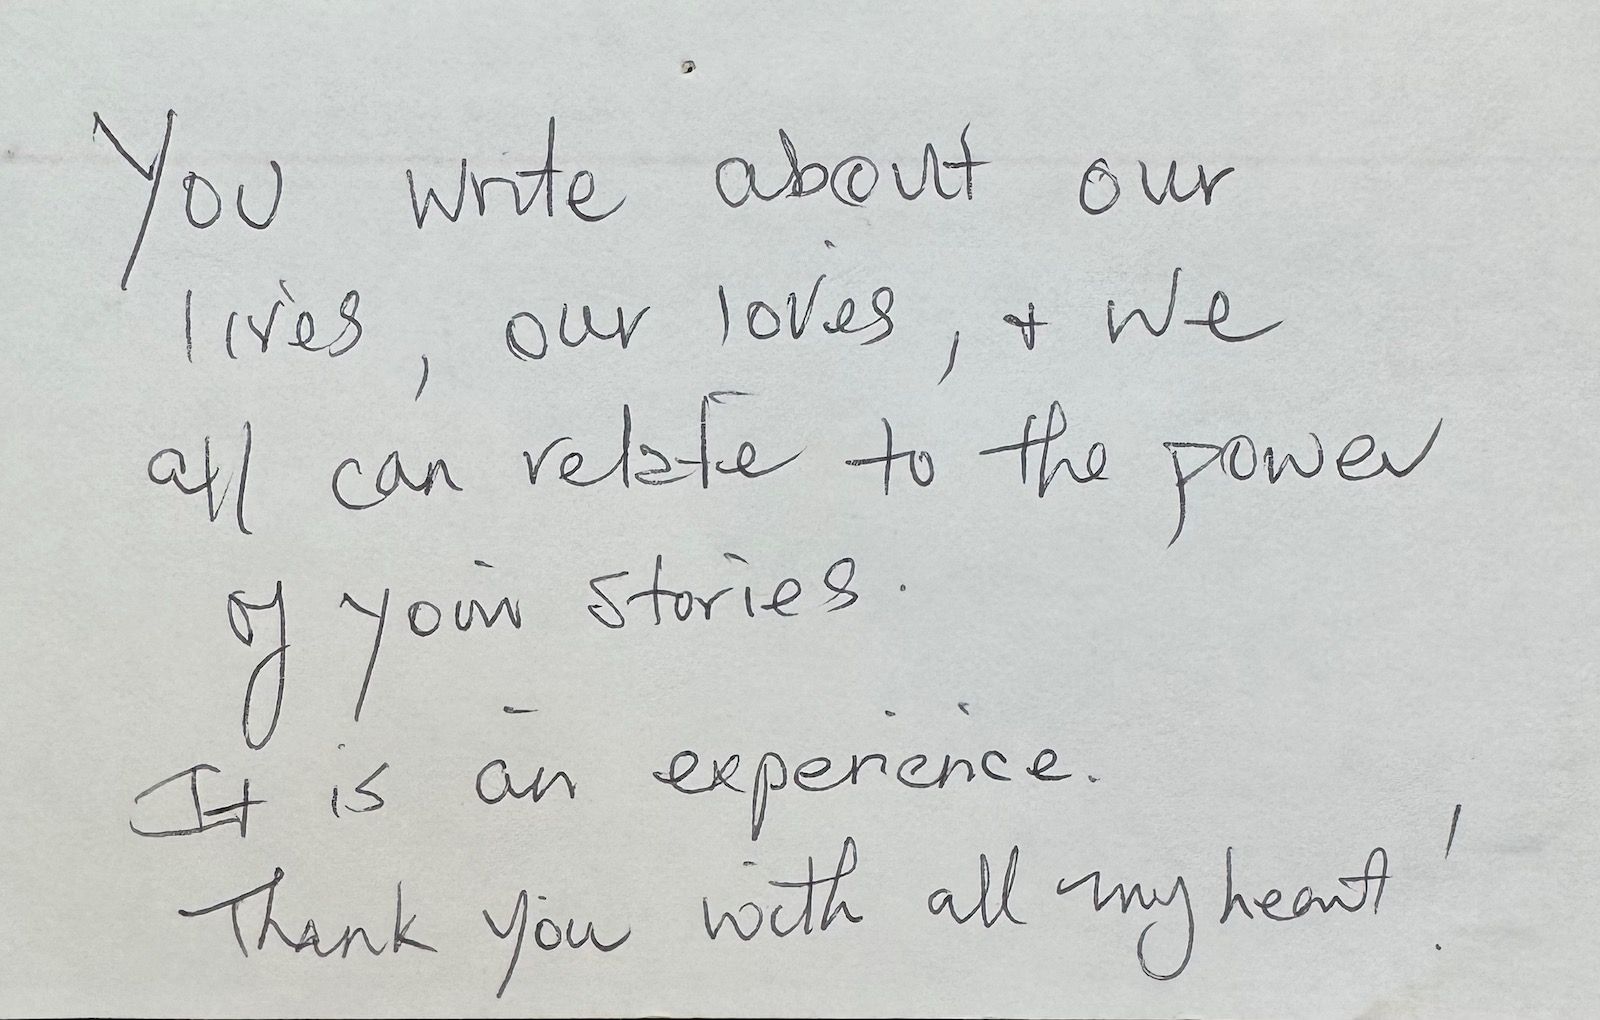 You write about our
lives, our loves, + we
all can relate to the power
of your stories.
It is an experience.
Thank you with all my heart!